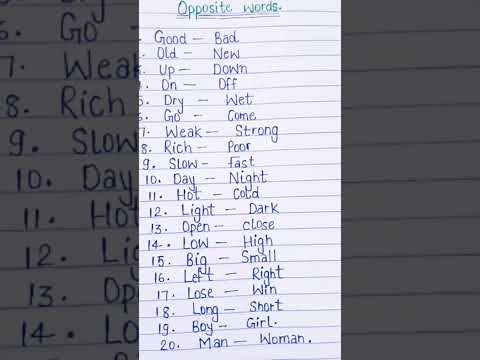 Opposite words.
Good – Bad
Old – New
Up – Down
On – Off
Dry – Wet
Go – Come
7. Weak – Strong
8. Rich – Poor
9. Slow – fast
10. Day – Night
11. Hot – Cold
12. Light – Dark
13. Open – close
14. Low – High
15. Big – Small
16. Left – Right
17. Lose – Win
18. Long – Short
19. Boy – Girl.
20. Man – Woman.